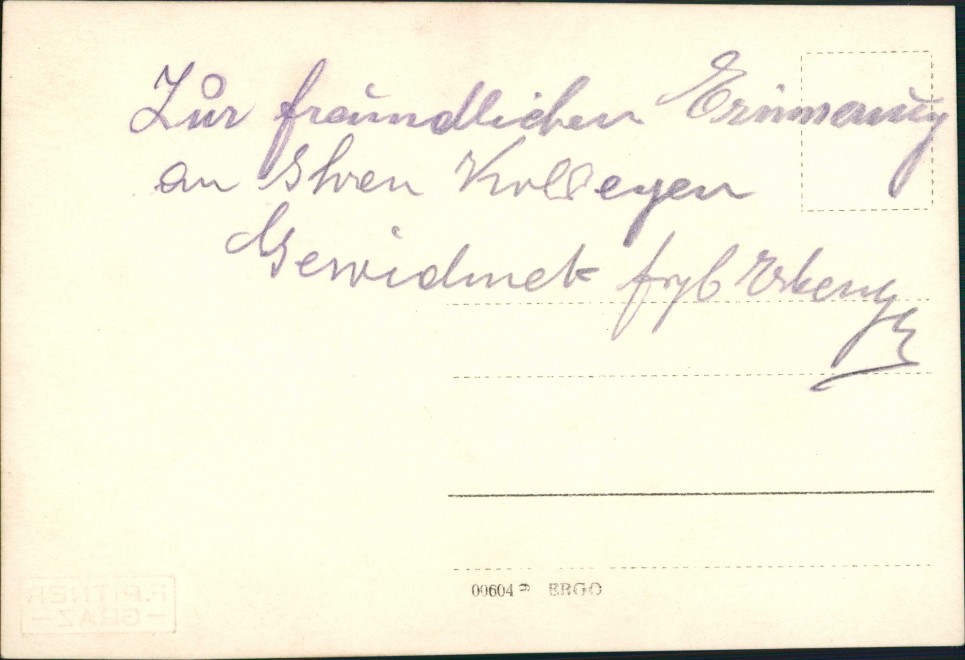 Zur freundlichen Erinnerung
an Ihren Kollegen
Gewidmet
00604 ERGO
F. PITNER
– GRAZ –